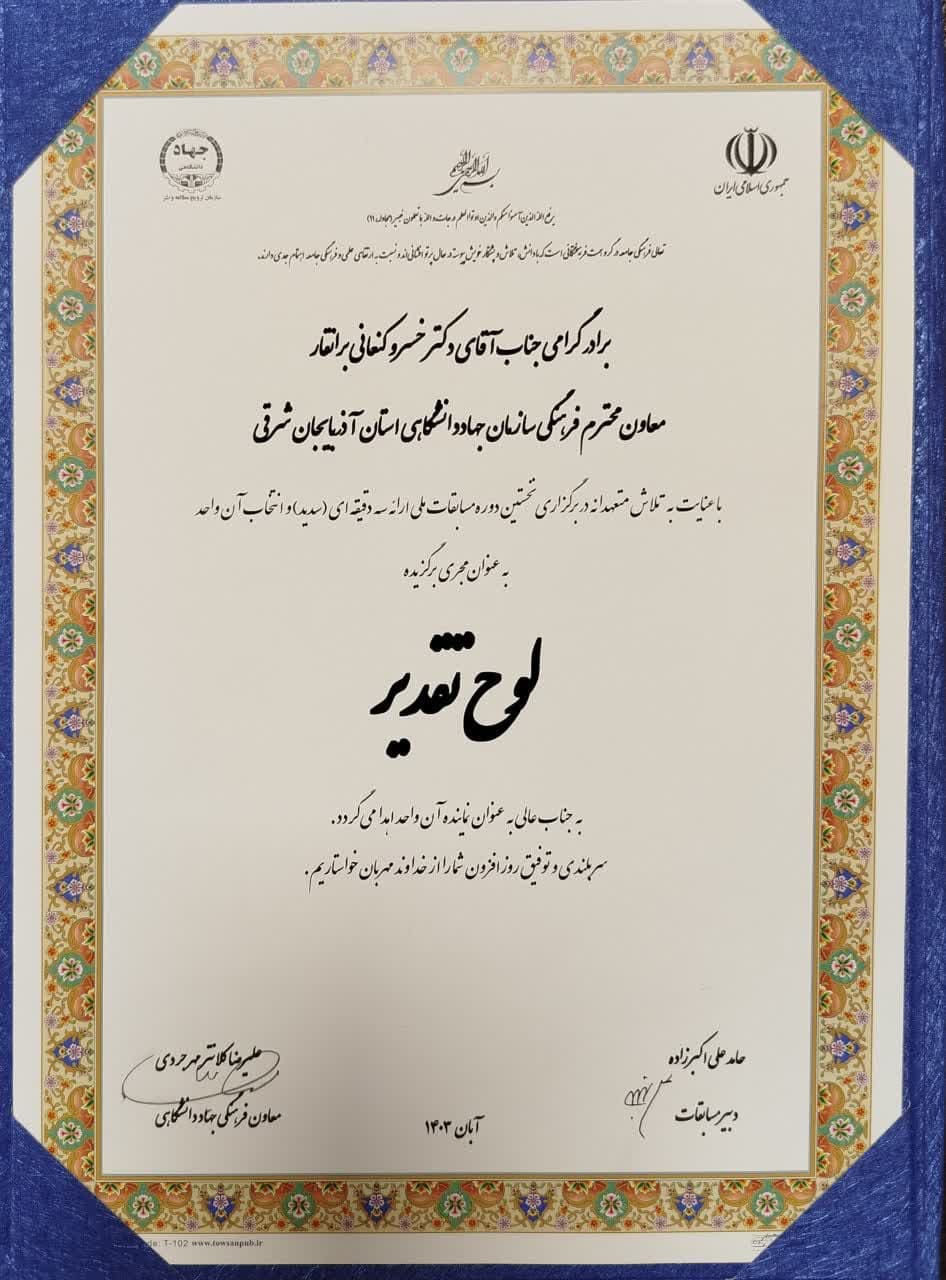 جمهوری اسلامی ایران
جهاد
دانشگاهی
سازمان ترویج مطالعه و نشر
بسم الله الرحمن الرحیم
یرفع الله الذین آمنوا منکم والذین اوتوا العلم درجات و الله بما تعملون خبیر (مجادله، ۱۱)
تعالی فرهنگی جامعه در گرو همت فرهیختگانی است که با دانش، تلاش و پشتکار خویش پیوسته در حال پرتو افشانی اند و نسبت به ارتقای علمی و فرهنگی جامعه اهتمام جدی دارند.
برادر گرامی جناب آقای دکتر خسرو کنعانی برانقار
معاون محترم فرهنگی سازمان جهاددانشگاهی استان آذربایجان شرقی
با عنایت به تلاش متعهدانه در برگزاری نخستین دوره مسابقات ملی ارائه سه دقیقه ای (سدید) و انتخاب آن واحد
به عنوان مجری برگزیده
لوح تقدیر
به جناب عالی به عنوان نماینده آن واحد اهدا می گردد.
سربلندی و توفیق روز افزون شما را از خداوند مهربان خواستاریم.
حامد علی اکبرزاده
دبیر مسابقات
آبان ۱۴۰۳
علیرضا کلانتر مهرجردی
معاون فرهنگی جهاد دانشگاهی
T-102 www.towsanpub.ir